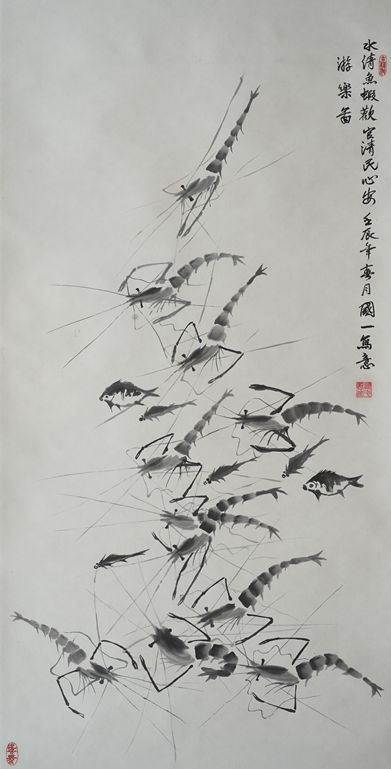 水清魚蝦歡官清民心安壬辰年春月國一寫意
游樂圖